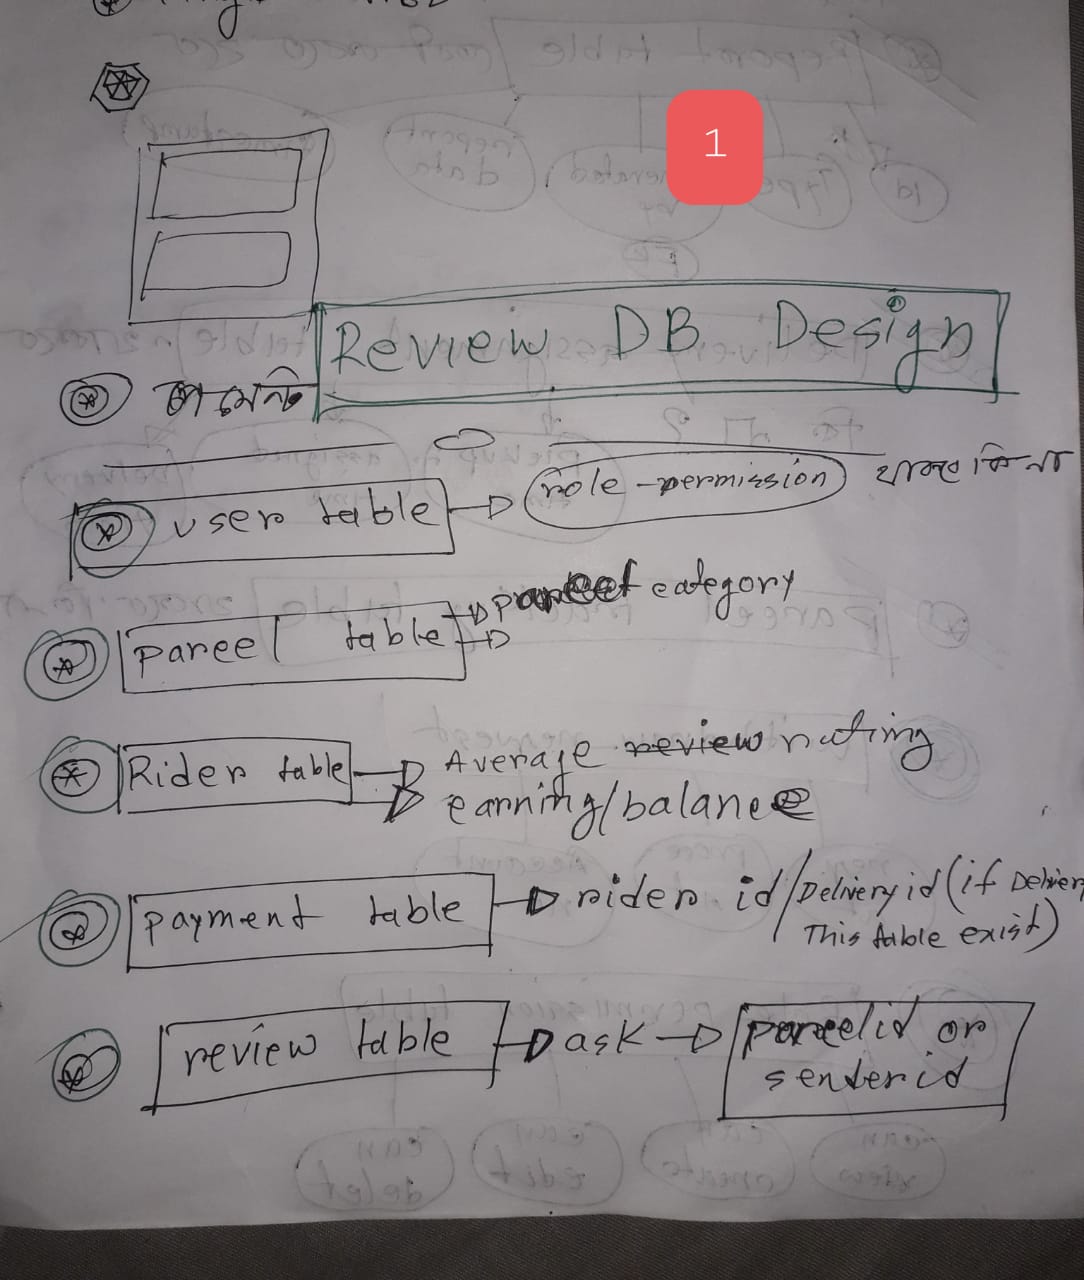 1
Review DB Design
user table → role-permission থাকবে কিনা
parcel table → parcel category
Rider table → Average review rating
earning/balance
payment table → rider id/Delivery id (if Delivery
This table exist)
review table → ask → parcel id or
sender id